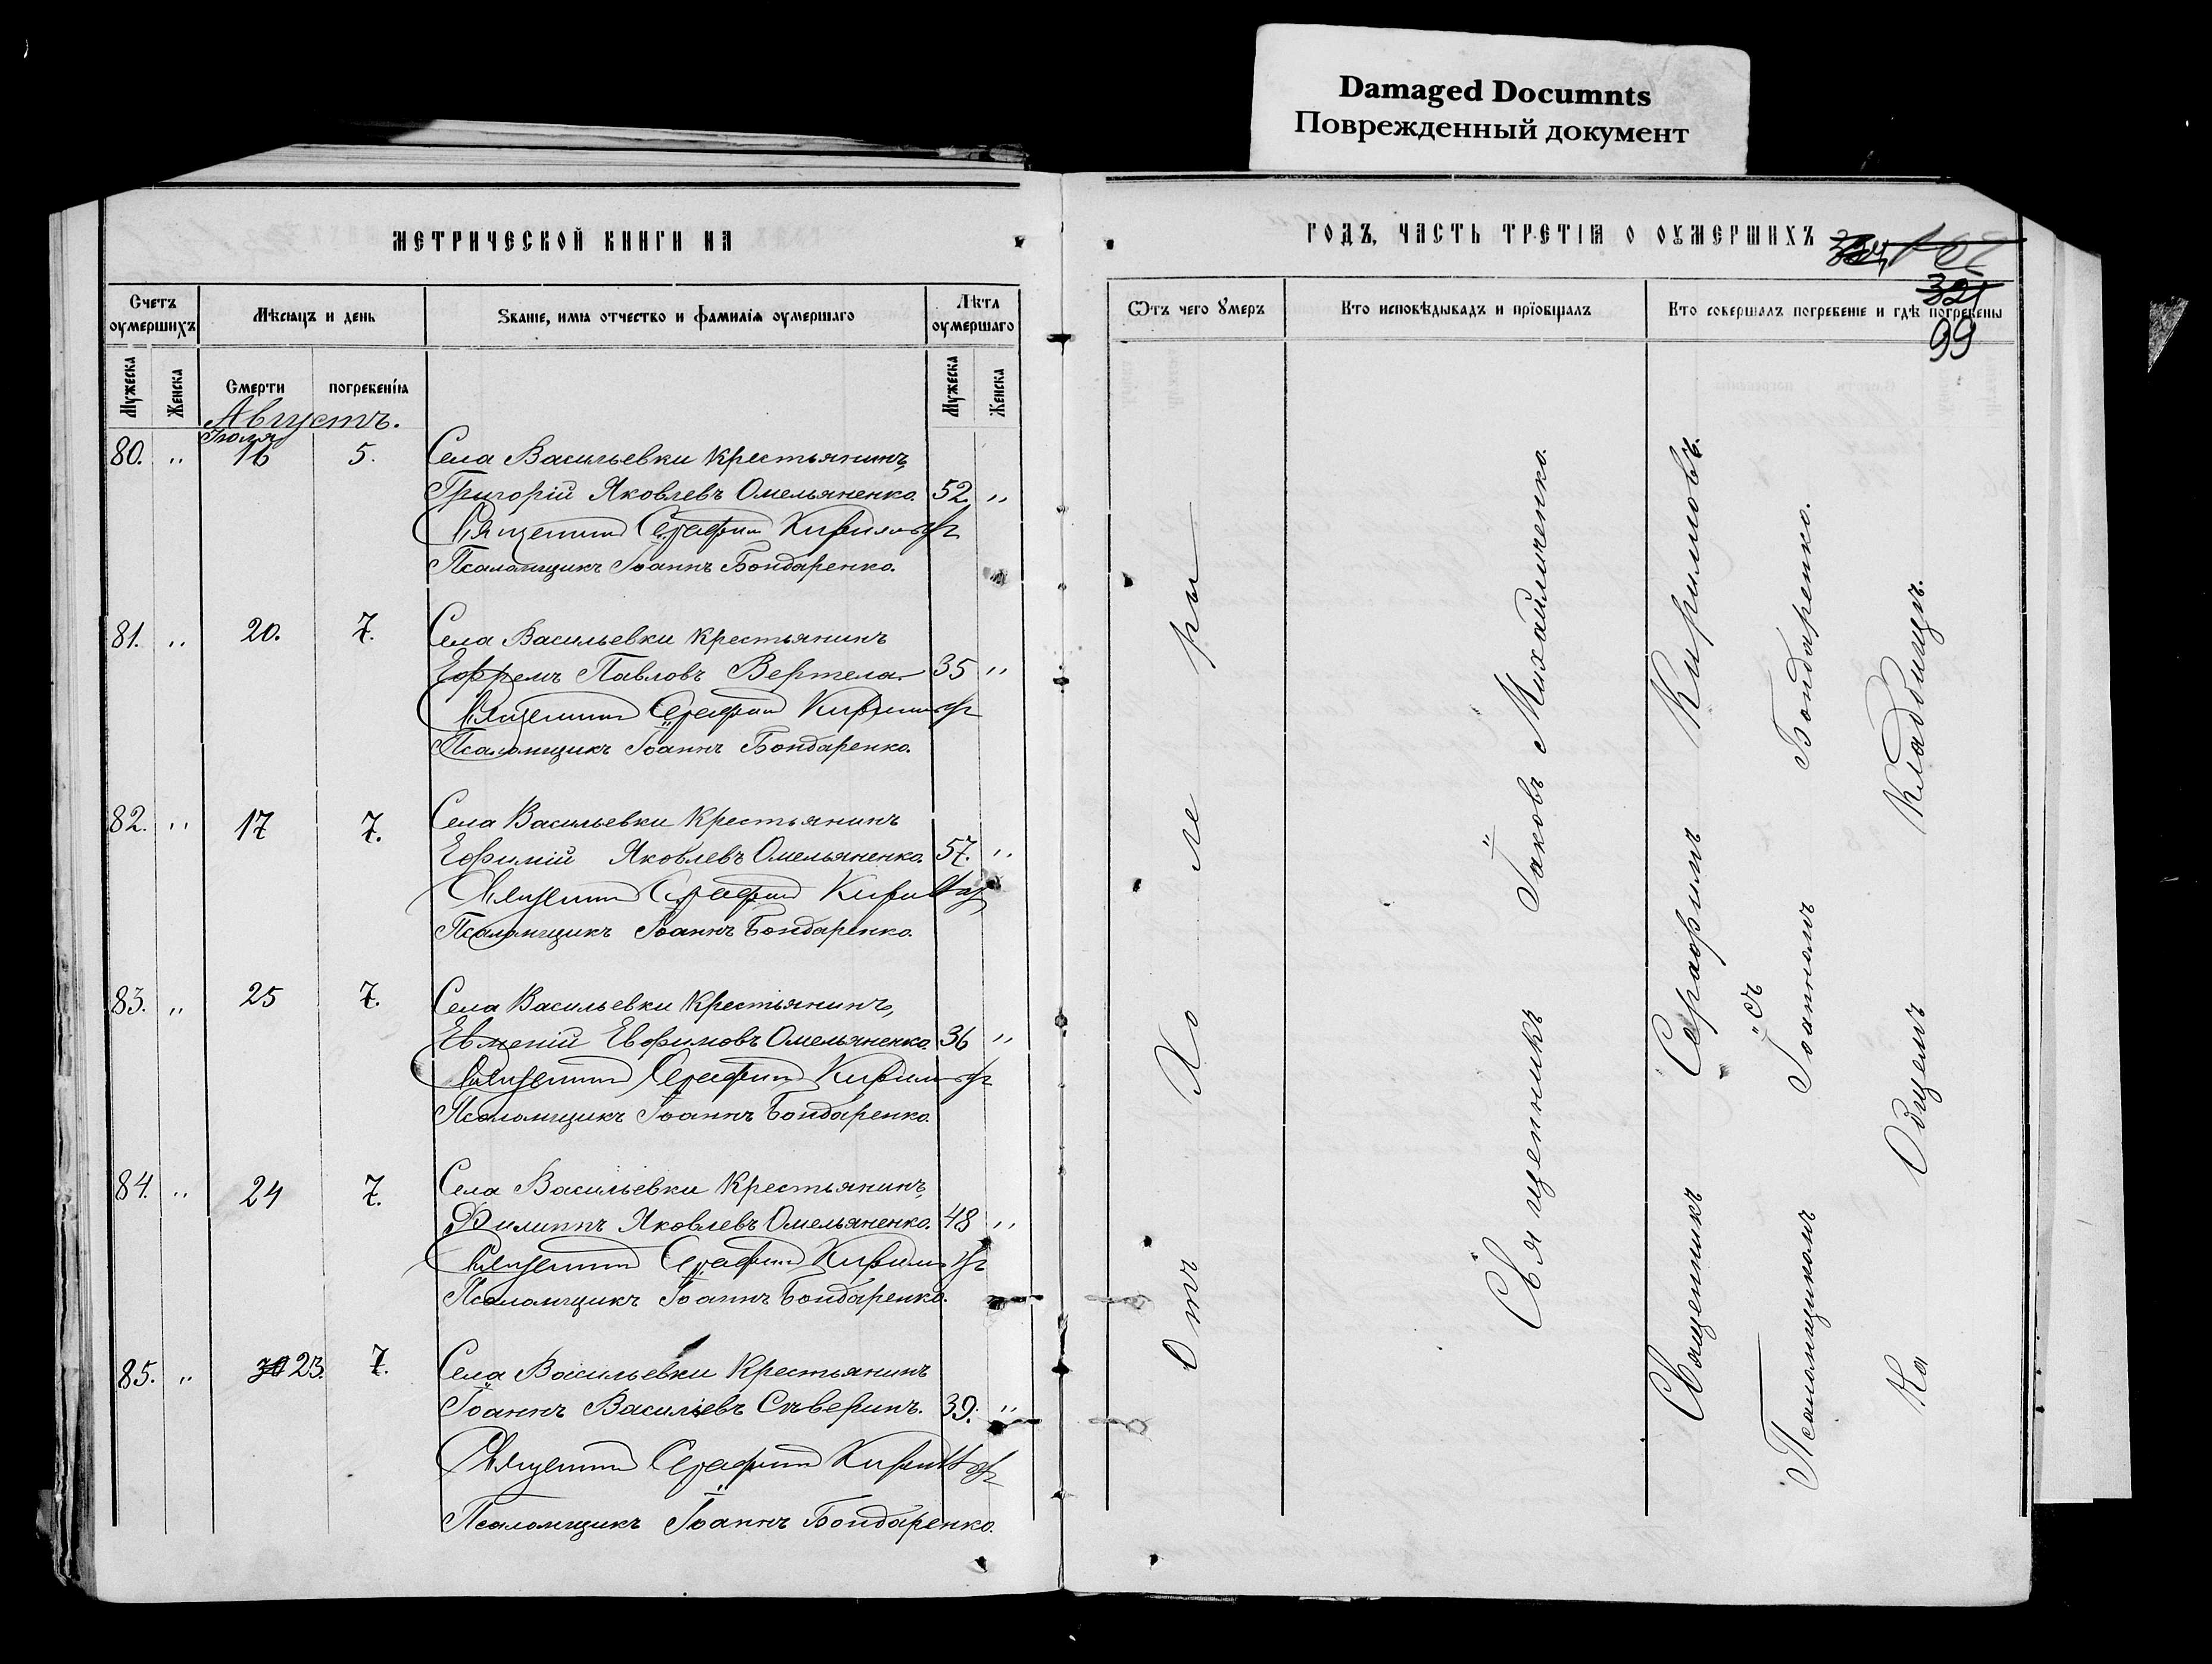 Damaged Documnts
Поврежденный документ
МЕТРИЧЕСКОЙ КНИГИ НА
Счетъ оумершихъ
Мѣсѧцъ и день
Званіе, имѧ отчество и фамиліѧ оумершаго
Лѣта оумершаго
Мужеска
Женска
Смерти
погребеніѧ
Мужеска
Женска
Августъ.
Іюля
80. " 16 5. Села Васильевки крестьянинъ
Григорій Яковлевъ Омельяненко. 52 "
Священник Серафим Кирилловъ
Псаломщикъ Іоаннъ Бондаренко.
81. " 20. 7. Села Васильевки крестьянинъ
Ефремъ Павловъ Вертела 35 "
Священник Серафим Кирилловъ
Псаломщикъ Іоаннъ Бондаренко.
82. " 17 7. Села Васильевки крестьянинъ
Ефимій Яковлевъ Омельяненко. 57. "
Священник Серафим Кирилловъ
Псаломщикъ Іоаннъ Бондаренко.
83. " 25 7. Села Васильевки крестьянинъ
Евменій Евфимовъ Омельяненко. 36 "
Священник Серафим Кирилловъ
Псаломщикъ Іоаннъ Бондаренко.
84. " 24 7. Села Васильевки крестьянинъ
Филиппъ Яковлевъ Омельяненко. 48 "
Священник Серафим Кирилловъ
Псаломщикъ Іоаннъ Бондаренко.
85. " 23. 7. Села Васильевки крестьянинъ
Іоаннъ Васильевъ Сѣверинъ. 39. "
Священник Серафим Кирилловъ
Псаломщикъ Іоаннъ Бондаренко.
ГОДЪ, ЧАСТЬ ТРЕТІѦ О ОУМЕРШИХЪ
321
99
Ѿтъ чего Ꙋмеръ
Кто исповѣдывалъ и прїобщалъ
Кто совершалъ погребеніе и гдѣ погребены
Отъ Холеры
Священникъ Іаковъ Михайличенко.
Священникъ Серафимъ Кирилловъ.
съ
Псаломщикомъ Іоанномъ Бондаренко.
На Общемъ Кладбищѣ.